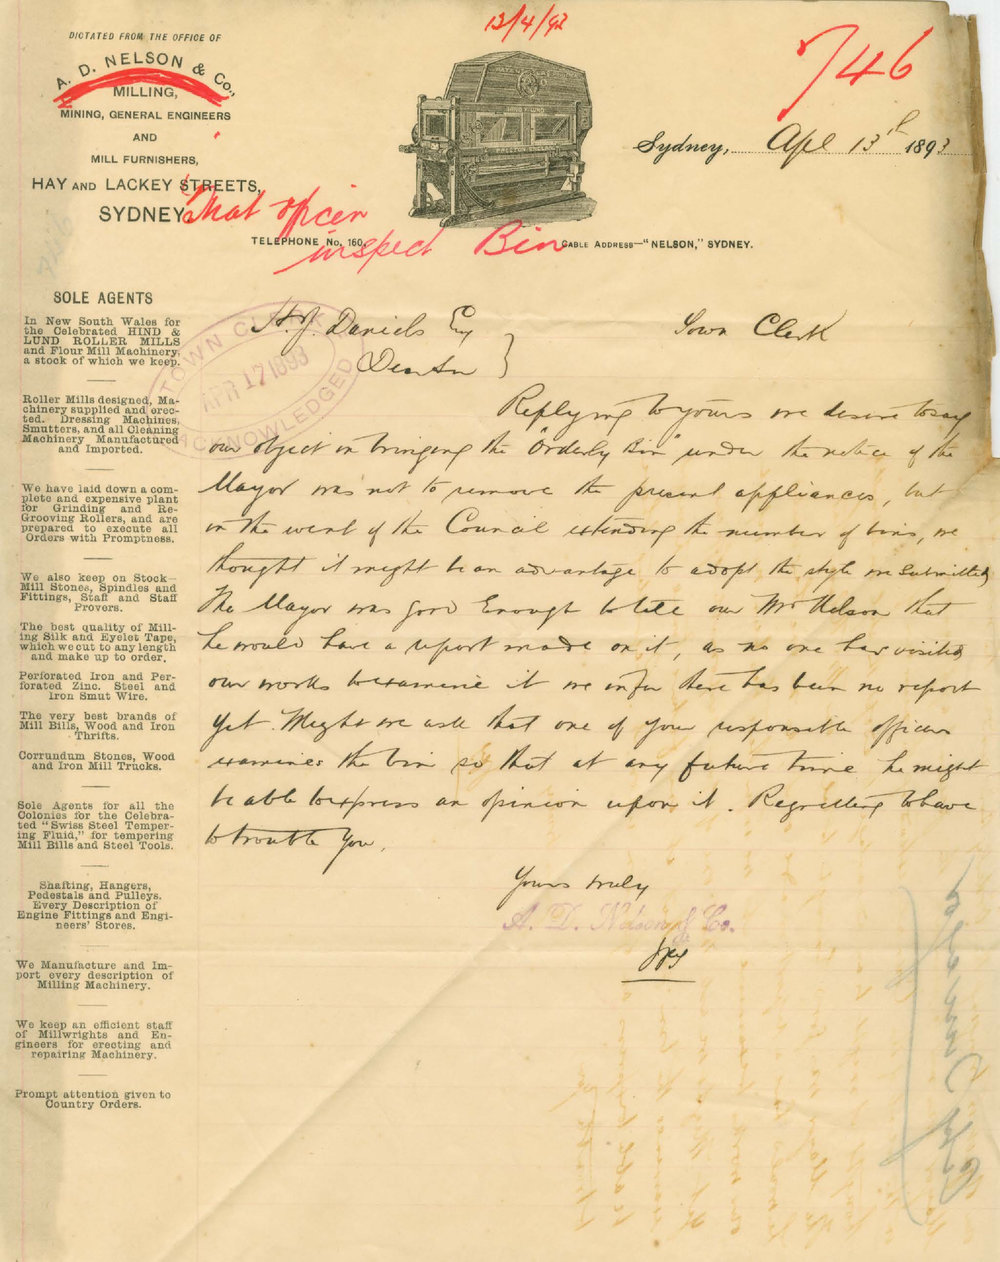 13/4/93
746
DICTATED FROM THE OFFICE OF
A. D. NELSON & Co.,
MILLING,
MINING, GENERAL ENGINEERS
AND
MILL FURNISHERS,
HAY AND LACKEY STREETS,
SYDNEY.
Sydney, Apl 13th 1893
That officer
inspect Bin
TELEPHONE No. 160.
CABLE ADDRESS—"NELSON," SYDNEY.
SOLE AGENTS
In New South Wales for
the Celebrated HIND &
LUND ROLLER MILLS
and Flour Mill Machinery,
a stock of which we keep.
Roller Mills designed, Ma-
chinery supplied and erec-
ted. Dressing Machines,
Smutters, and all Cleaning
Machinery Manufactured
and Imported.
We have laid down a com-
plete and expensive plant
for Grinding and Re-
Grooving Rollers, and are
prepared to execute all
Orders with Promptness.
We also keep on Stock—
Mill Stones, Spindles and
Fittings, Staff and Staff
Provers.
The best quality of Mill-
ing Silk and Eyelet Tape,
which we cut to any length
and make up to order.
Perforated Iron and Per-
forated Zinc. Steel and
Iron Smut Wire.
The very best brands of
Mill Bills, Wood and Iron
Thrifts.
Corrundum Stones, Wood
and Iron Mill Trucks.
Sole Agents for all the
Colonies for the Celebra-
ted "Swiss Steel Temper-
ing Fluid," for tempering
Mill Bills and Steel Tools.
Shafting, Hangers,
Pedestals and Pulleys.
Every Description of
Engine Fittings and Engi-
neers' Stores.
We Manufacture and Im-
port every description of
Milling Machinery.
We keep an efficient staff
of Millwrights and En-
gineers for erecting and
repairing Machinery.
Prompt attention given to
Country Orders.
TOWN CLERK
APR 17 1893
ACKNOWLEDGED
H. J. Daniels Esq Town Clerk
Dear Sir
Replying to yours we desire to say
our object in bringing the "Orderly Bin" under the notice of the
Mayor was not to remove the present appliances, but
in the event of the Council extending the number of bins, we
thought it might be an advantage to adopt the style we submitted
The Mayor was good Enough to tell our Mr Nelson that
he would have a report made on it, as no one has visited
our works to examine it we infer there has been no report
yet. Might we ask that one of your responsible officers
examines the bin so that at any future time he might
be able to express an opinion upon it. Regretting to have
to trouble you,
Yours truly
A. D. Nelson & Co.